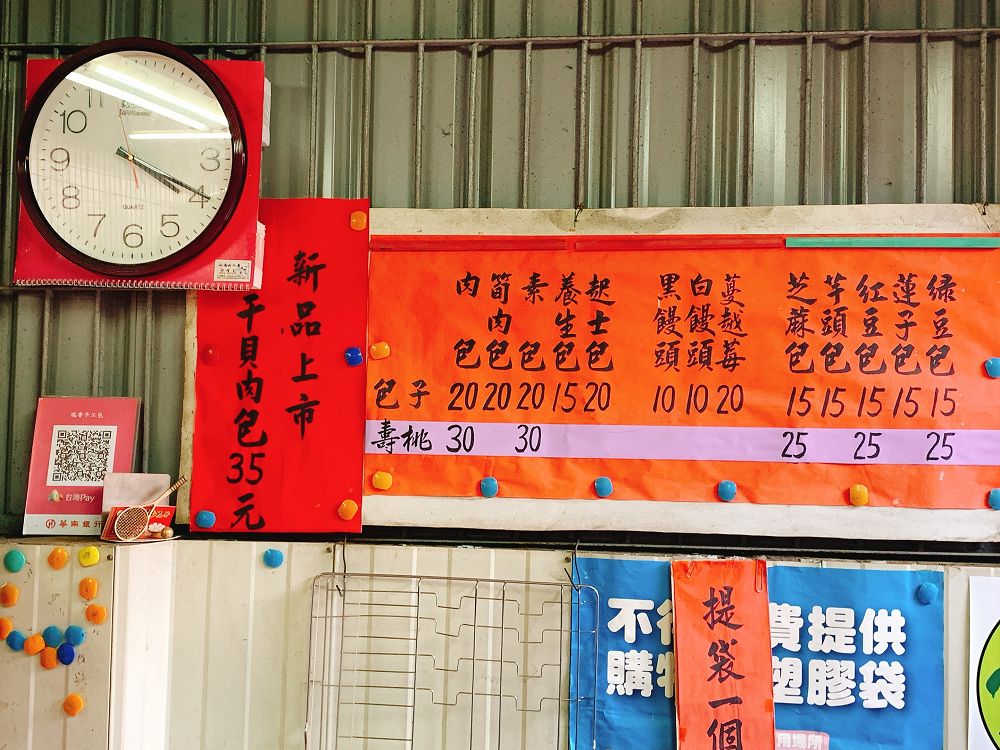 11
10
9
8
7
6
5
4
3
QUARTZ
新品上市
干貝肉包35元
肉包 筍肉包 素包 養生包 起士包 黑饅頭 白饅頭 蔓越莓 芝蔴包 芋頭包 紅豆包 蓮子包 綠豆包
包子 20 20 20 15 20 10 10 20 15 15 15 15 15
壽桃 30 30 25 25 25
手工包
台灣Pay
華南銀行
不 費提供
購 塑膠袋
用場所
提袋一個